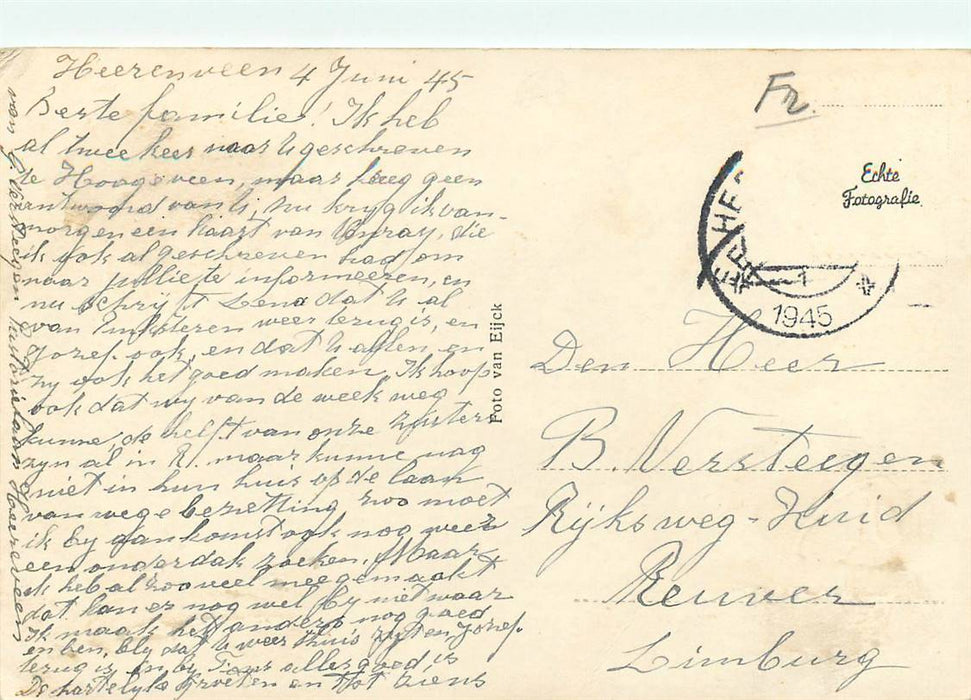 Heerenveen 4 Juni 45
Beste familie! Ik heb
al twee keer naar U geschreven
te Hoogeveen, maar kreeg geen
antwoord van U, nu kryg ik van-
morgen een kaart van Venray, die
ik ook al geschreven had om
naar jullie te informeeren, en
nu schrijft Lena dat U al
van Pinksteren weer terug is, en
Jozef ook, en dat U allen, en
zy ook het goed maken. Ik hoop
ook dat wy van de week weg
kunne, de helft van onze zusters
zyn al in R. maar kunne nog
niet in hun huis op de laan
van wege bezetting zoo moet
ik by aankomst ook nog weer
een onderdak zoeken. Maar
ik heb al zooveel meegemaakt
dat kan er nog wel by niet waar
Ik maak het anders nog goed
en ben bly dat U weer thuis zyt en Jozef
terug is, en by Tons alles goed is
De hartelyke groeten en tot ziens
Foto van Eijck
Fr.
Echte
Fotografie
HEE
1
1945
Den Heer
B. Versteegen
Rijksweg-Zuid
Reuver
Limburg